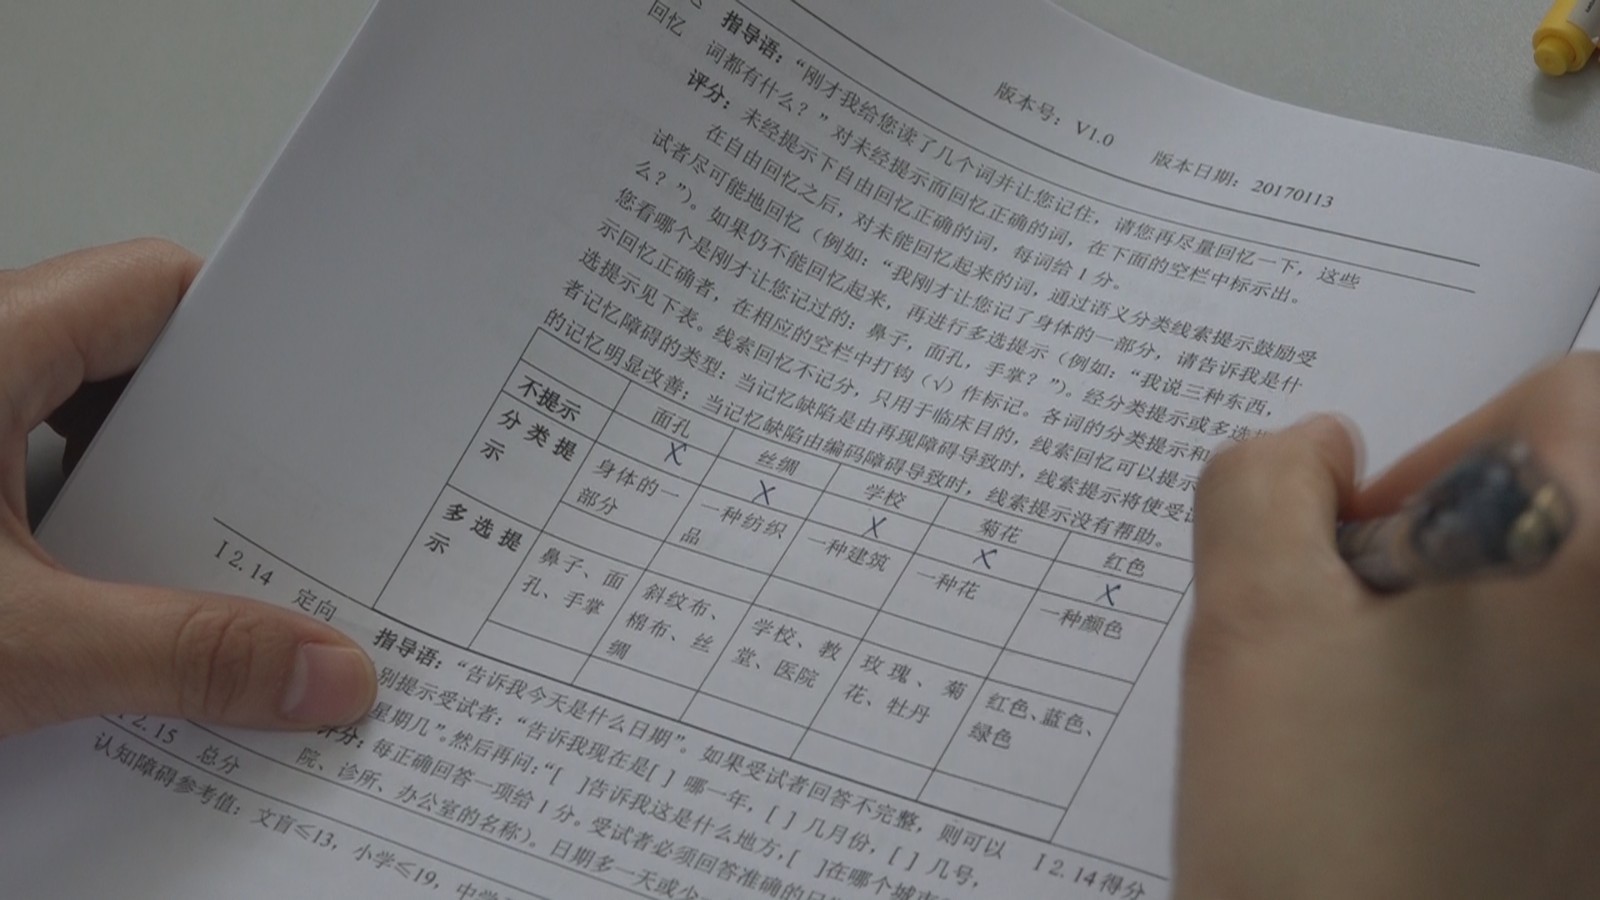 版本号：V1.0 版本日期：20170113
指导语：“刚才我给您读了几个词并让您记住，请您再尽量回忆一下，这些
回忆 词都有什么？”对未经提示而回忆正确的词，在下面的空栏中标示出。
评分：未经提示下自由回忆正确的词，每词给 1 分。
在自由回忆之后，对未能回忆起来的词，通过语义分类线索提示鼓励受
试者尽可能地回忆（例如：“我刚才让您记了身体的一部分，请告诉我是什
么？”）。如果仍不能回忆起来，再进行多选提示（例如：“我说三种东西，
您看哪个是刚才让您记过的：鼻子，面孔，手掌？”）。经分类提示或多选
示回忆正确者，在相应的空栏中打钩（√）作标记。各词的分类提示和
选提示见下表。线索回忆不记分，只用于临床目的，线索回忆可以提示
者记忆障碍的类型：当记忆缺陷是由再现障碍导致时，线索提示将使受
的记忆明显改善；当记忆缺陷由编码障碍导致时，线索提示没有帮助。
面孔 丝绸 学校 菊花 红色
不提示 X X X X X
分类提示 身体的一部分 一种纺织品 一种建筑 一种花 一种颜色
多选提示 鼻子、面孔、手掌 斜纹布、棉布、丝绸 学校、教堂、医院 玫瑰、菊花、牡丹 红色、蓝色、绿色
I 2.14 定向
指导语：“告诉我今天是什么日期”。如果受试者回答不完整，则可以
别提示受试者：“告诉我现在是[ ] 哪一年，[ ] 几月份，[ ] 几号，
星期几”。然后再问：“[ ]告诉我这是什么地方，[ ]在哪个城
评分：每正确回答一项给 1 分。受试者必须回答准确的
院、诊所、办公室的名称）。日期多一天或少
I 2.14得分
2.15 总分
认知障碍参考值：文盲≤13，小学≤19，中学